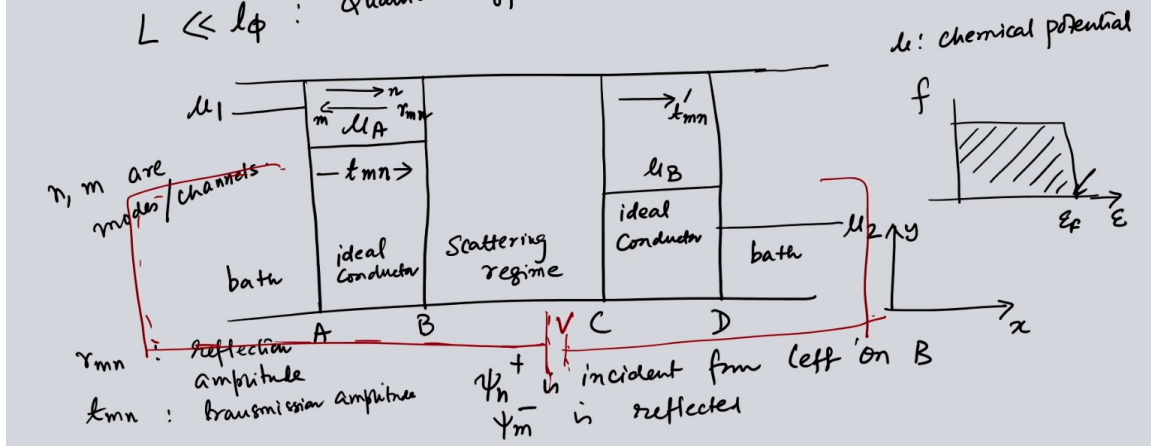 L << lϕ : 
μ: chemical potential
μ1
n
m
rmn
μA
t'mn
f
n, m are
modes/channels
tmn
μB
εF ε
bath
ideal
Conductor
Scattering
regime
ideal
Conductor
bath
μ2
y
x
A B V C D
rmn : reflection
amplitude
tmn : transmission amplitude
ψn+ is incident from left on B
ψm- is reflected